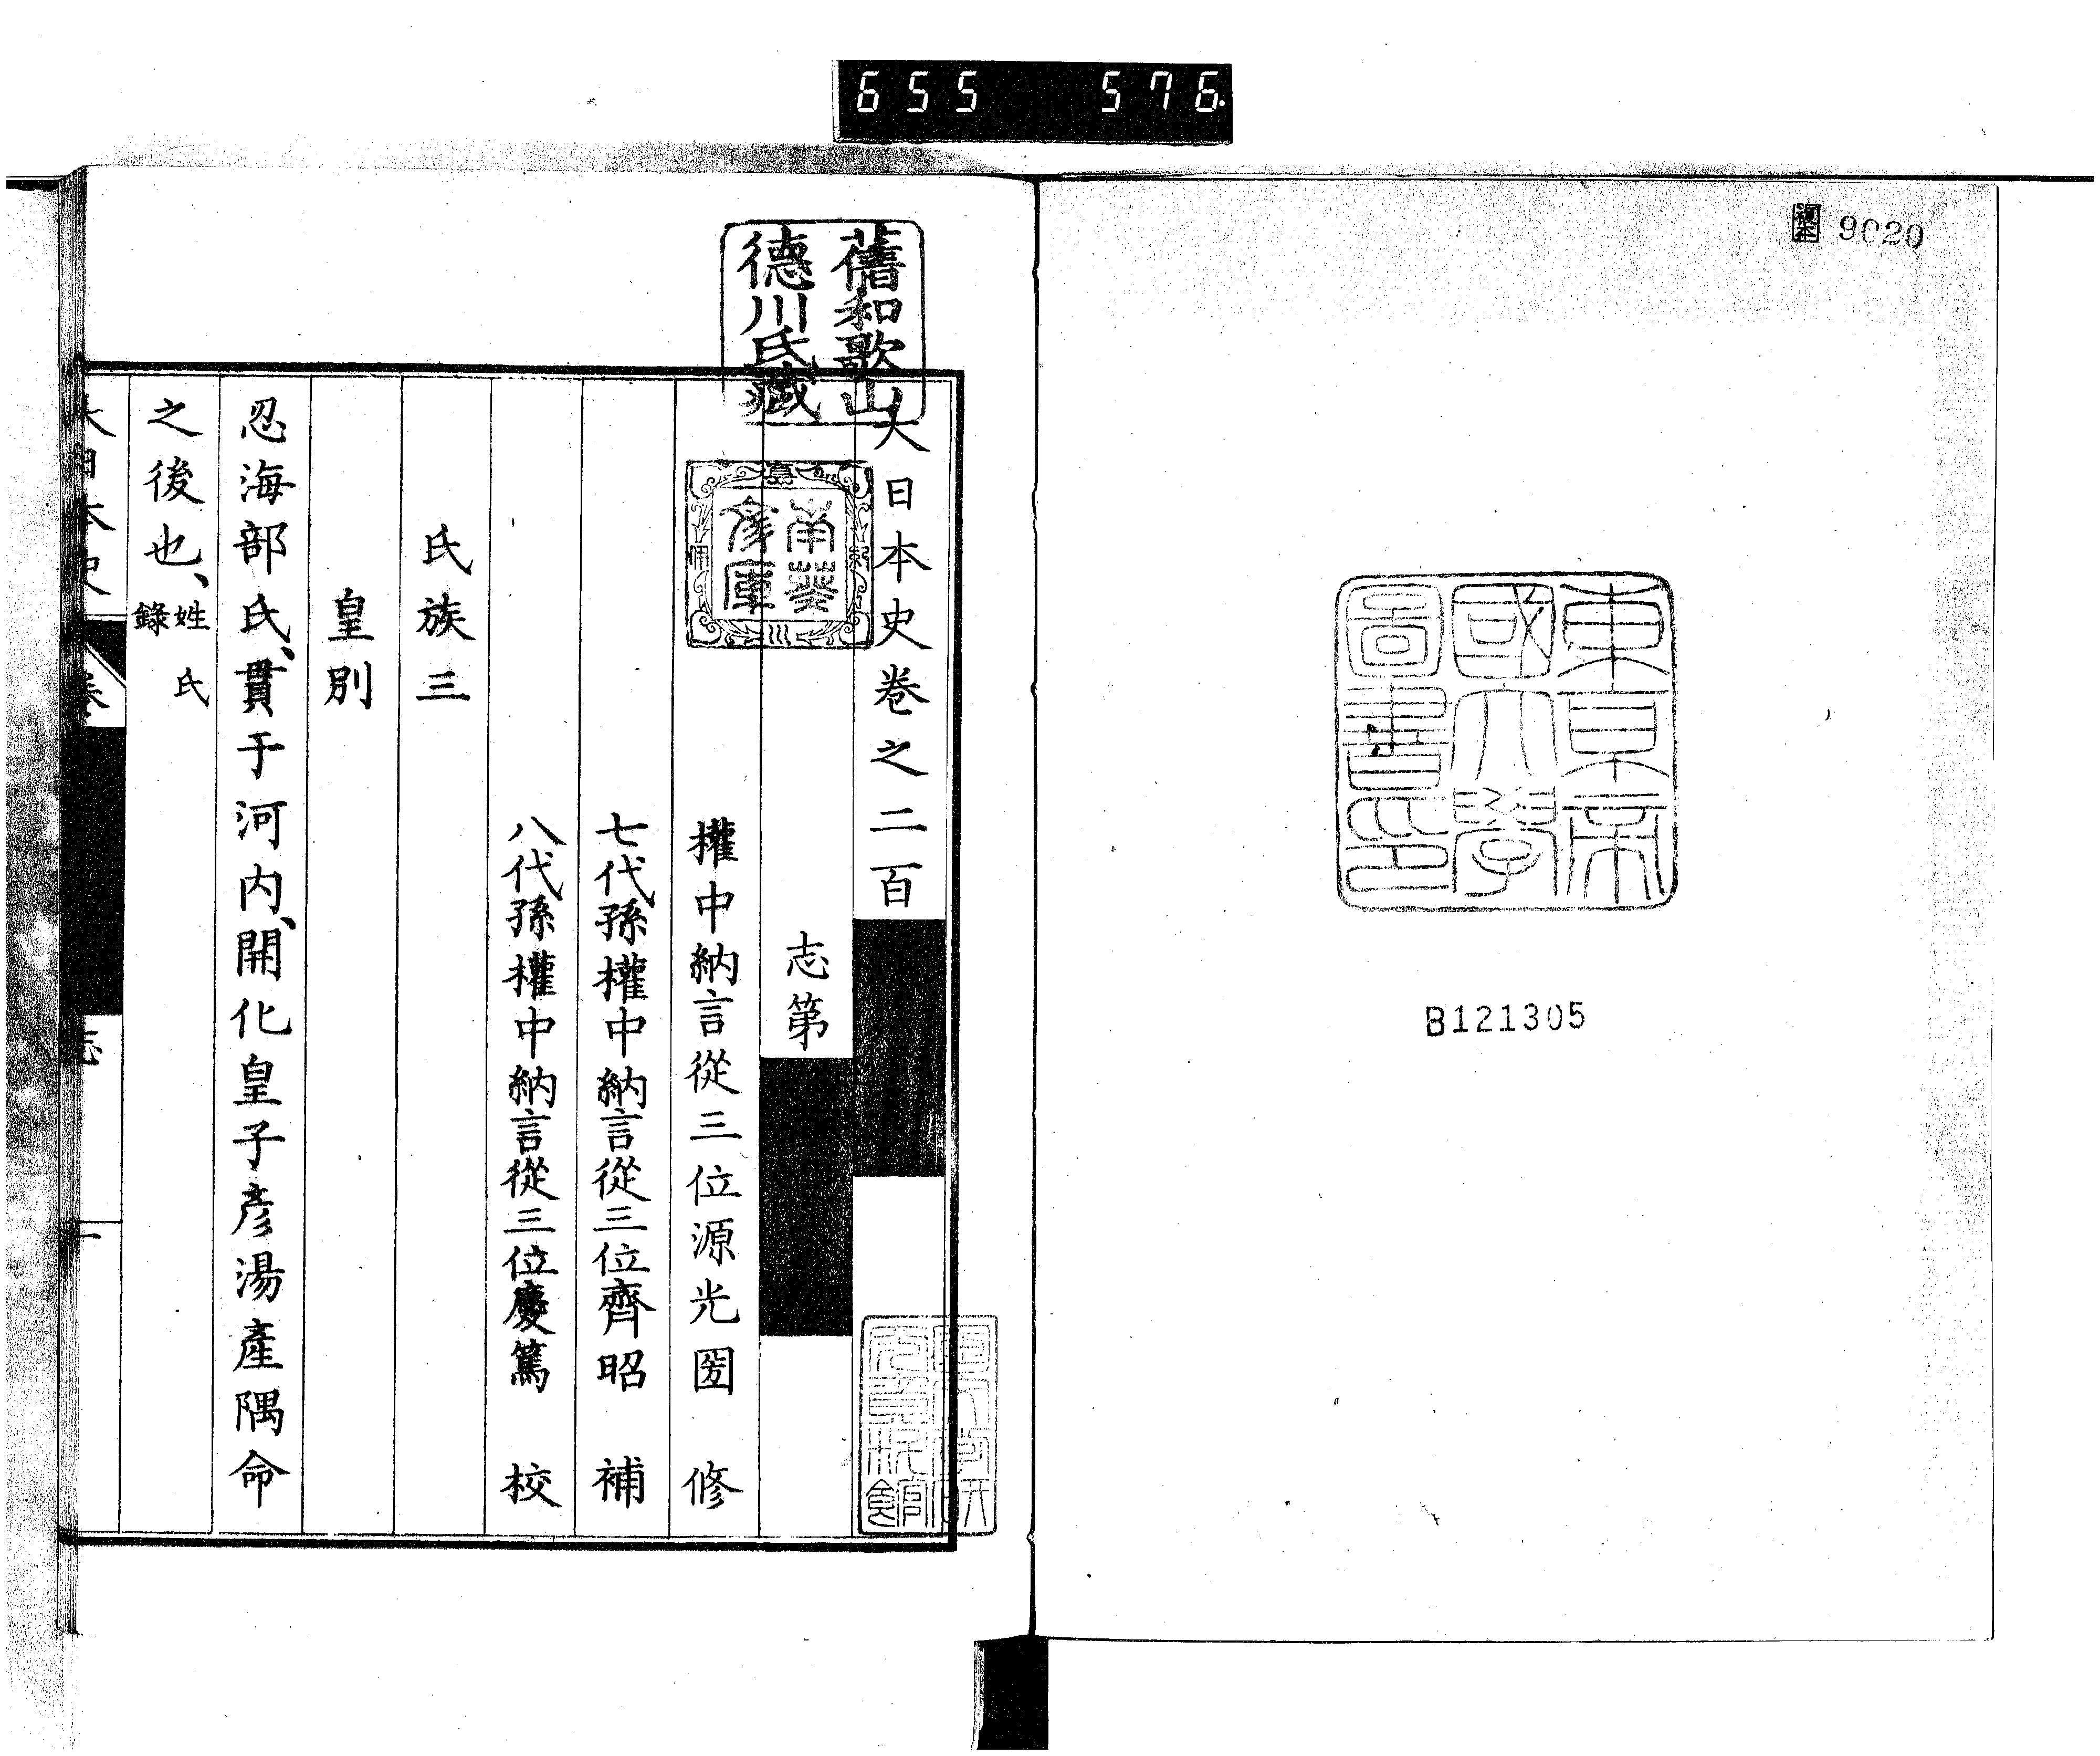 655 576.
9020
東京帝
國大學
圖書印
B121305
舊和歌山
德川氏藏
南葵
文庫
大日本史卷之二百
志第
權中納言從三位源光圀 修
七代孫權中納言從三位齊昭 補
八代孫權中納言從三位慶篤 校
氏族三
皇別
忍海部氏、貫于河內、開化皇子彥湯產隅命
之後也、姓氏
錄
大日本史
卷
志
一